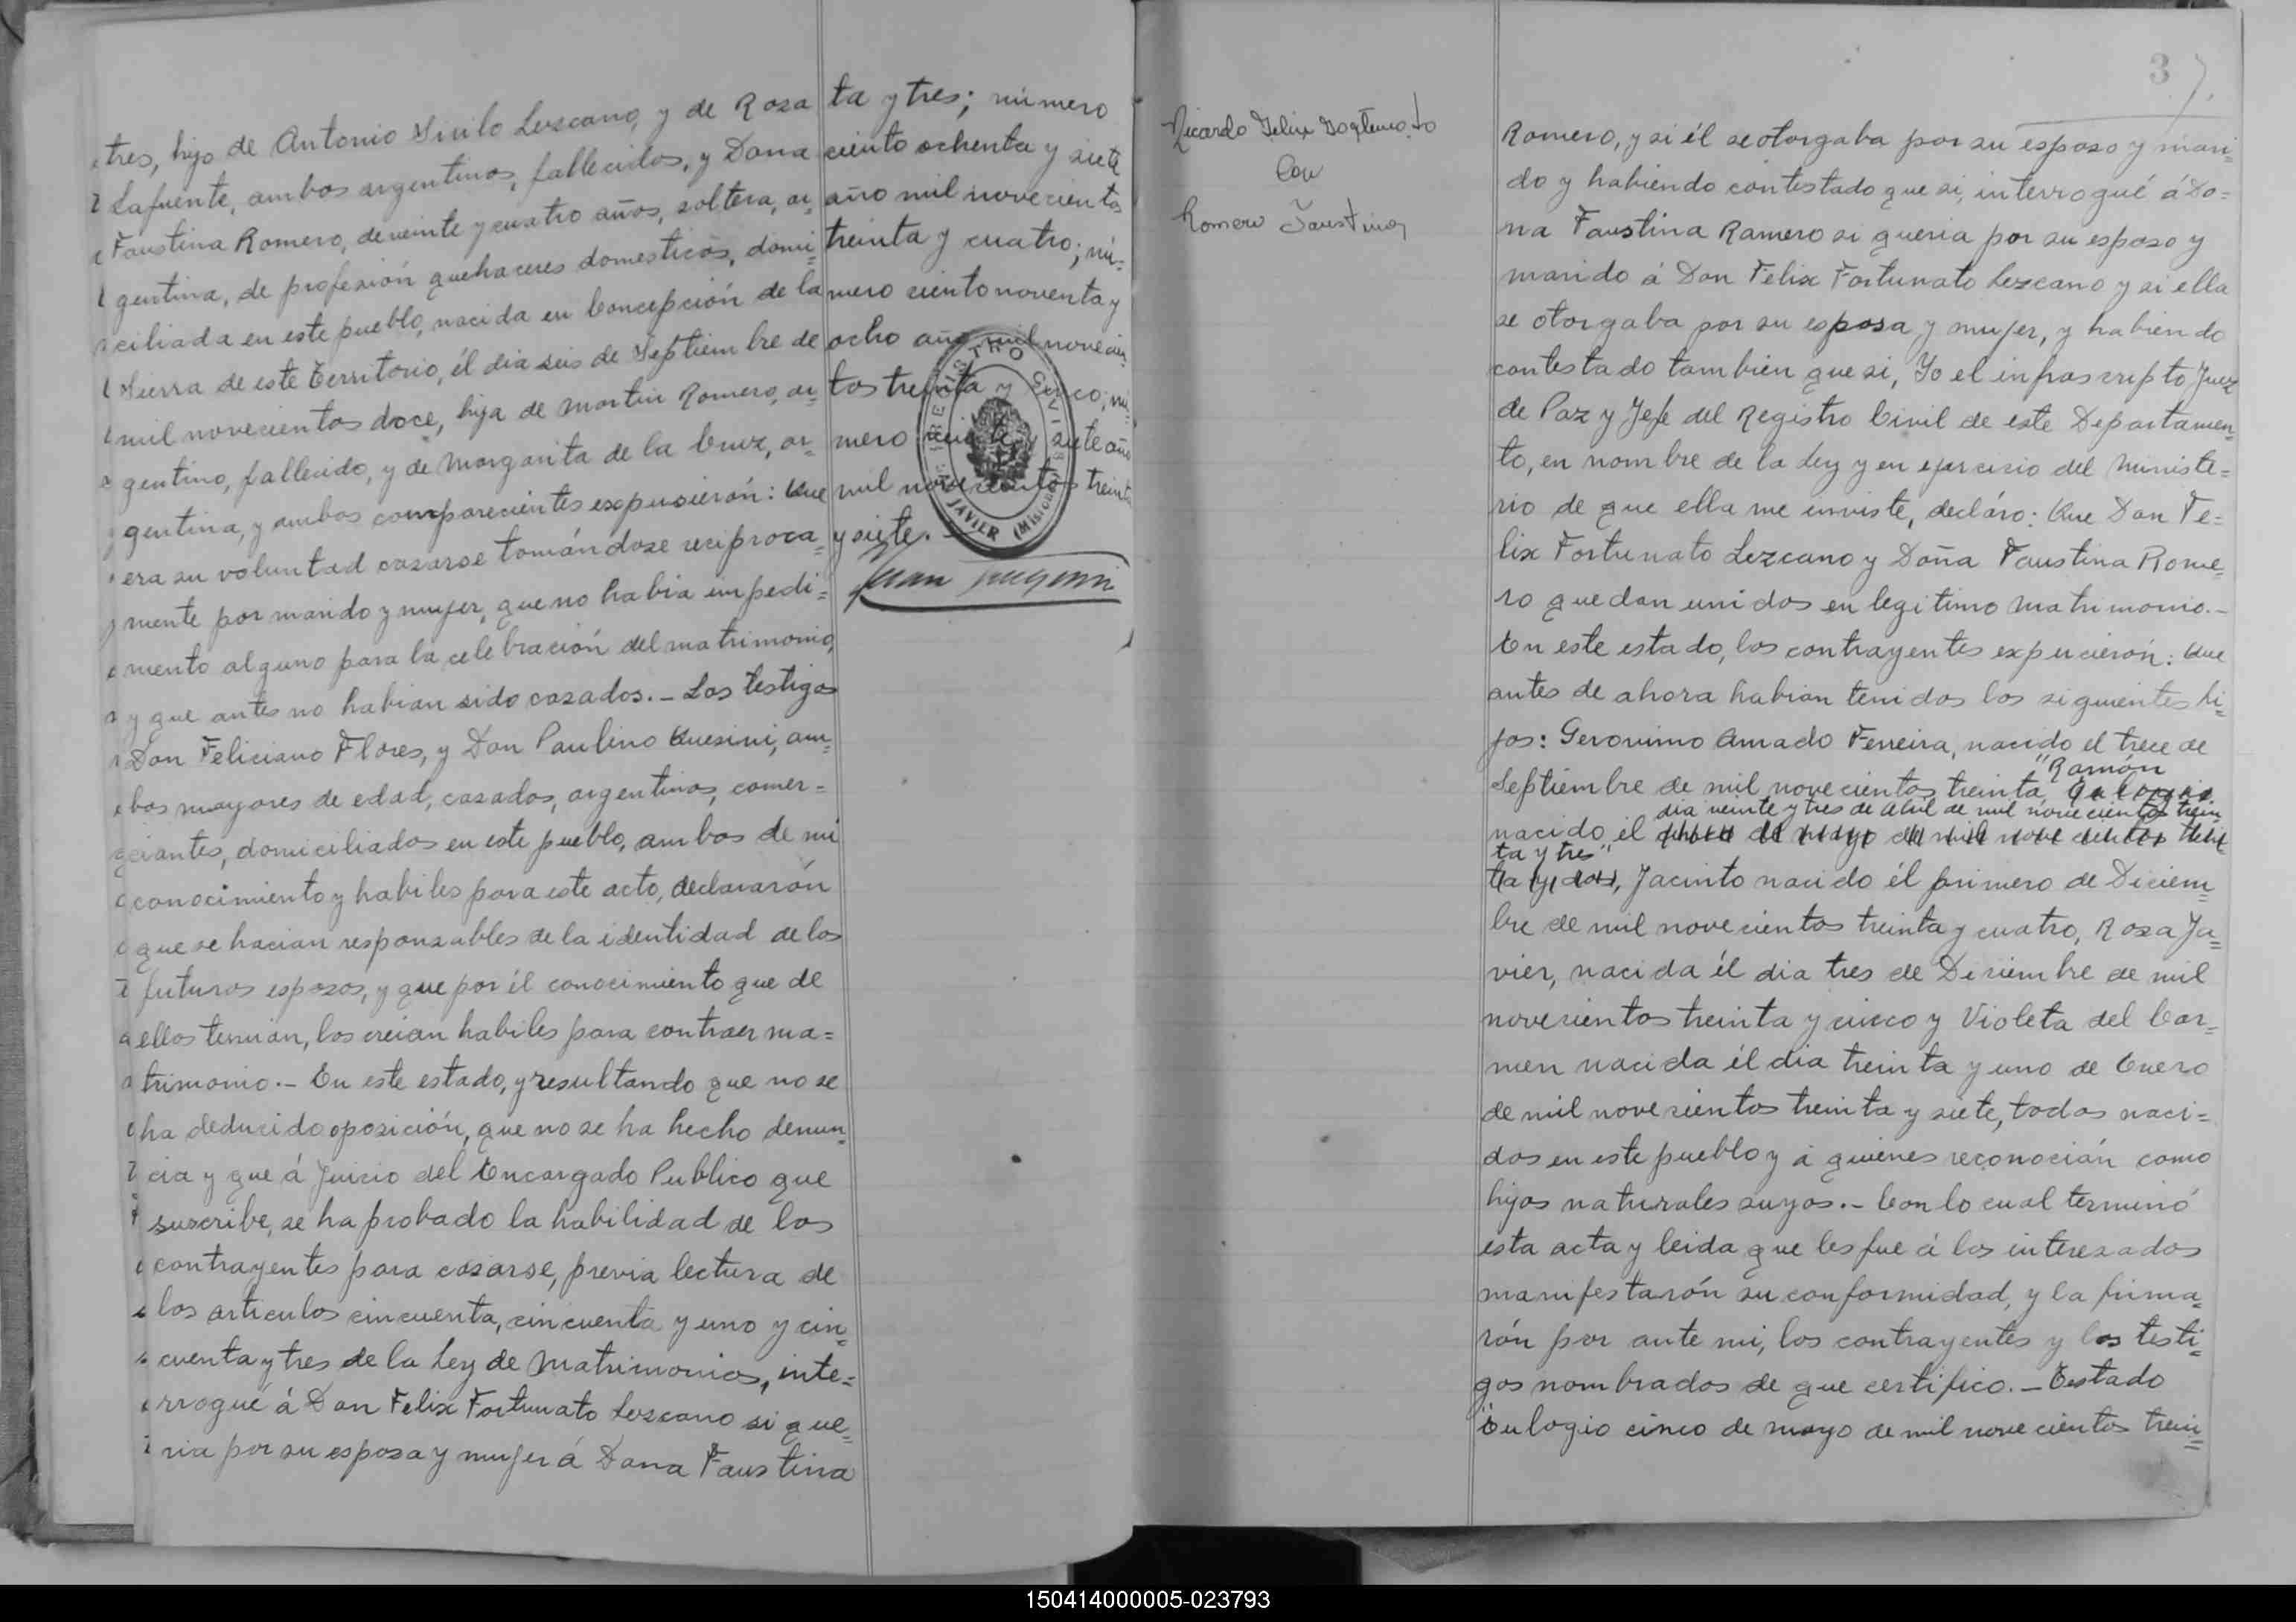 tres, hijo de Antonio Sirilo Lezcano, y de Rosa
Lafuente, ambos argentinos, fallecidos, y Dona
Faustina Romero, de veinte y cuatro años, soltera, ar-
gentina, de profesión quehaceres domesticos, domi-
ciliada en este pueblo, nacida en Concepción de la
Sierra de este Territorio, él dia seis de Septiembre de
mil novecientos doce, hija de Martin Romero, ar-
gentino, fallecido, y de Margarita de la Cruz, ar-
gentina, y ambos comparecientes expusierón: Que
era su voluntad casarse tomándose reciproca-
mente por marido y mujer, que no habia impedi-
mento alguno para la celebración del matrimonio,
y que antes no habian sido casados.- Los testigos
Don Feliciano Flores, y Don Paulino Quesini, am-
bos mayores de edad, casados, argentinos, comer-
ciantes, domiciliados en este pueblo, ambos de mi
conocimiento y habiles para este acto, declararón
que se hacian responsables de la identidad de los
futuros esposos, y que por él conocimiento que de
ellos tenian, los creian habiles para contraer ma=
trimonio.- En este estado, y resultando que no se
ha deducido oposición, que no se ha hecho denun-
cia y que á Juicio del Encargado Publico que
suscribe, se ha probado la habilidad de los
contrayentes para casarse, previa lectura de
los articulos cincuenta, cincuenta y uno y cin-
cuenta y tres de la Ley de Matrimonios, inte=
rrogué á Don Felix Fortunato Lezcano si que-
ria por su esposa y mujer á Dona Faustina
ta y tres; número
ciento ochenta y siete
año mil novecientos
treinta y cuatro; nú-
mero ciento noventa y
ocho año mil novecien
tos treinta y cinco; nú-
mero y siete año
mil novecientos treinta
y siete.
REGISTRO CIVIL
JAVIER (Misiones)
Con
Romero Faustina
3
Romero, y si él se otorgaba por su esposo y mari-
do y habiendo contestado que si, interrogué á Do=
na Faustina Ramero si queria por su esposo y
marido á Don Felix Fortunato Lezcano y si ella
se otorgaba por su esposa y mujer, y habiendo
contestado tambien que si, Yo el infrascripto Juez
de Paz y Jefe del Registro Civil de este Departamen-
to, en nombre de la Ley y en ejercisio del Ministe=
rio de que ella me inviste, decláro: Que Don Fe=
lix Fortunato Lezcano y Doña Faustina Rome-
ro quedan unidos en legitimo Matrimonio.-
En este estado, los contrayentes expucierón: Que
antes de ahora habian tenidos los siguientes hi-
jos: Geronimo Amado Ferreira, nacido el trece de
"Ramón
Septiembre de mil novecientos treinta,
dia veinte y tres de abril de mil novecientos trein
nacido él cinco de mayo de mil novecientos trein
ta y tres"
ta y dos, Jacinto nacido él primero de Diciem-
bre de mil novecientos treinta y cuatro, Rosa Ja-
vier, nacida él dia tres de Desiembre de mil
novesientos treinta y cinco y Violeta del Car-
men nacida él dia treinta y uno de Enero
de mil novesientos treinta y siete, todos naci=
dos en este pueblo y á quienes reconocián como
hijos naturales suyos.- Con lo cual terminó
esta acta y leida que les fue á los interesados
manifestarón su conformidad, y la firma-
rón por ante mi, los contrayentes y los testi-
gos nombrados de que certifico.- Testado
Eulogio cinco de mayo de mil novecientos trein-
150414000005-023793